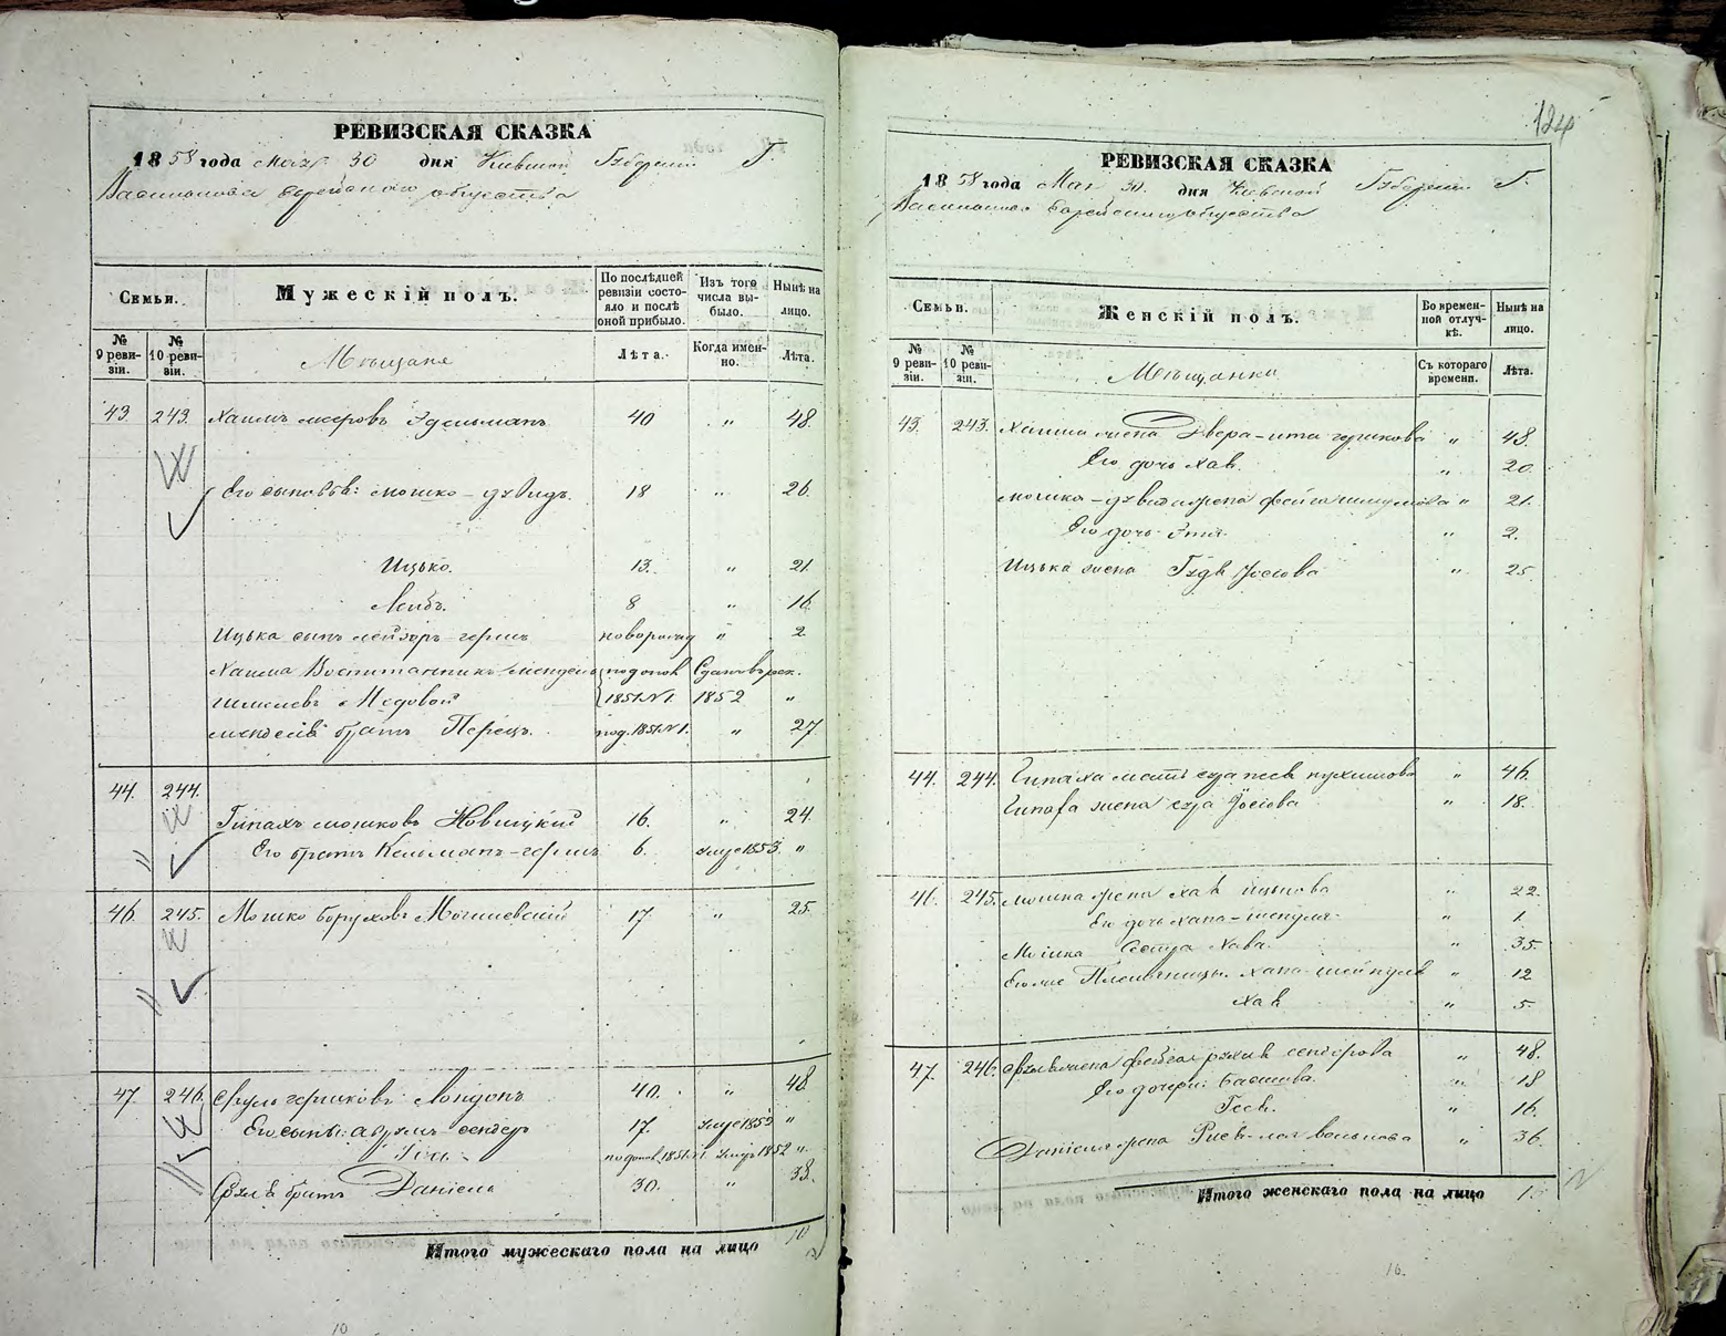 РЕВИЗСКАЯ СКАЗКА
1858 года Мая 30 дня Киевской Губернии Г.
Василькова Еврейского общества
Семьи.
Мужескій полъ.
По послѣдней ревизіи состояло и послѣ оной прибыло.
Изъ того числа выбыло.
Нынѣ на лицо.
№ 9 ревизіи.
№ 10 ревизіи.
Мѣщане
Лѣта.
Когда именно.
Лѣта.
43. 243. Хаимъ Мееровъ Эдельманъ 40 " 48.
Его сыновья: Мошко-Дувидъ. 18 " 26.
Ицько. 13. " 21.
Лейбъ. 8 " 16.
Ицька сынъ Лейзоръ-Гершъ новорожд " 2
Хаима Воспитанникъ Мендель по допол Сданъ въ рек.
1851 № 1. 1852 "
Менделя братъ Перецъ. под. 1851 № 1. " 27.
44. 244.
Мошковъ Новицкий 16. " 24.
Его братъ Кельманъ-Гершъ 6. умре 1853. "
46. 245. Мошко Боруховъ 17. " 25.
47. 246. Сруль Гершковъ Лондонъ 40. " 48
Его сыны: Аврумъ-Сендер 17. умре 1853 "
по допол 1851 умре 1852 "
Сруля братъ Даніель 30. " 38.
Итого мужескаго пола на лицо 10
10
124
РЕВИЗСКАЯ СКАЗКА
1858 года Мая 30. дня Киевской Губернии Г.
Василькова Еврейского общества
Семьи.
Женскій полъ.
Во временной отлучкѣ.
Нынѣ на лицо.
№ 9 ревизіи.
№ 10 ревизіи.
Мѣщанки
Съ котораго времени.
Лѣта.
43. 243. Хаима жена Двера-Ита Гершкова " 48.
Его дочь Хая. " 20.
Мошка-Дувида жена Фейга " 21.
Его дочь Этя. " 2.
Ицька жена Иосіова " 25.
44. 244. мать " 46.
жена Иосіова " 18.
46. 245. Мошка жена Хая Ицькова " 22.
Его дочь Хана-Шендля. " 1.
Мошка Сестра Хава. " 35.
Его же Племянницы. Хана " 12
Хая " 5.
47. 246. Сруля жена Фейга Рухля Сендерова " 48.
Его дочери: Басшева. " 18
Геся. " 16.
Даніеля жена " 36.
Итого женскаго пола на лицо
16.